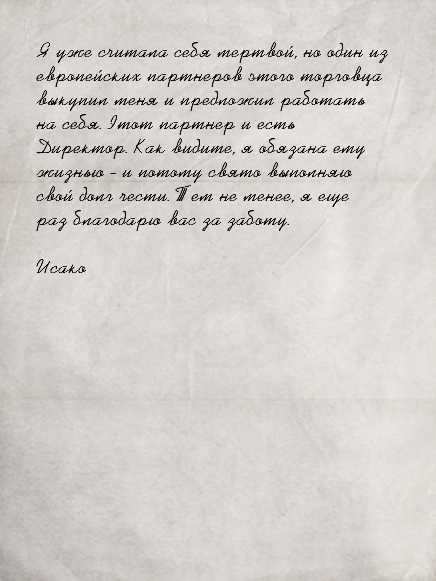 Я уже считала себя мертвой, но один из
европейских партнеров этого торговца
выкупил меня и предложил работать
на себя. Этот партнер и есть
Директор. Как видите, я обязана ему
жизнью - и потому свято выполняю
свой долг чести. Тем не менее, я еще
раз благодарю вас за заботу.

Исако